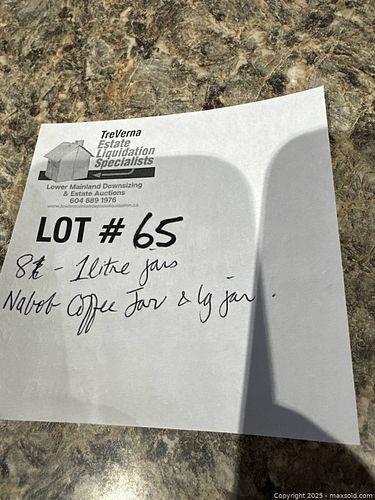 TreVerna
Estate
Liquidation
Specialists
Lower Mainland Downsizing
& Estate Auctions
604 689 1976
www.lowermainlandestateliquidation.ca
LOT # 65
8 - 1 litre jars
Nabob Coffee Jar & lg jar.
Copyright 2025 - maxsold.com